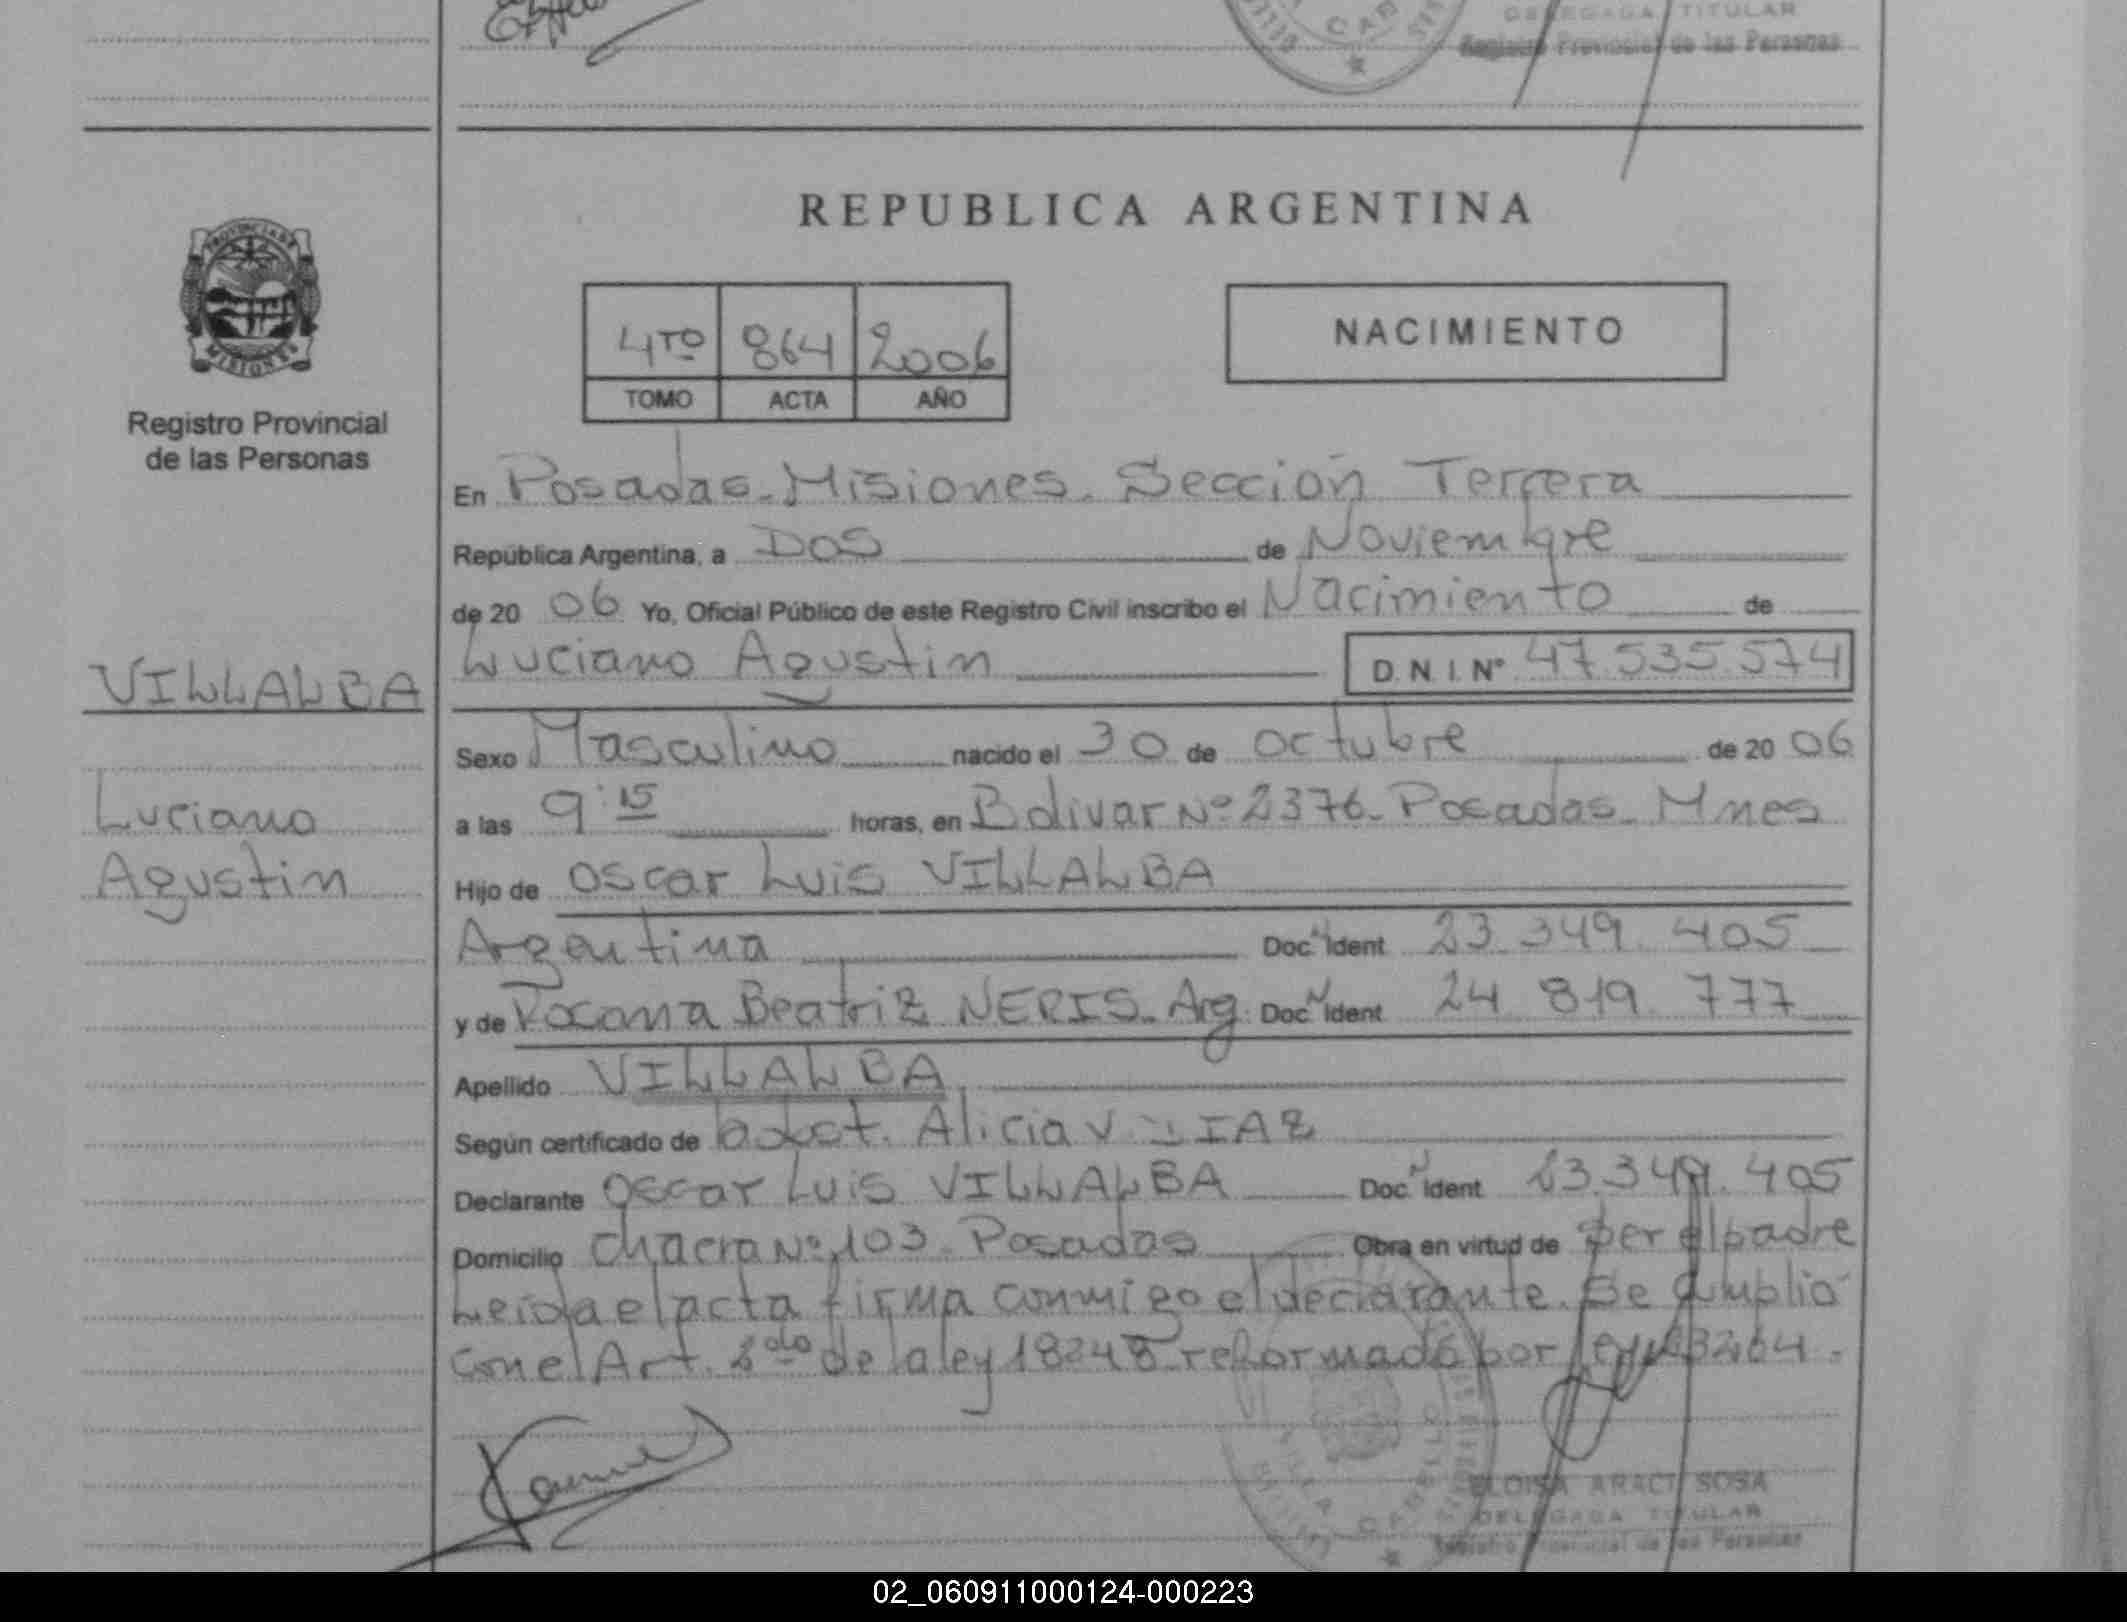 DELEGADA TITULAR
Registro Provincial de las Personas
REPUBLICA ARGENTINA
PROVINCIA DE
MISIONES
Registro Provincial
de las Personas
4TO 864 2006
TOMO ACTA AÑO
NACIMIENTO
En Posadas. Misiones. Sección Tercera
República Argentina, a DOS de Noviembre
de 20 06 Yo, Oficial Público de este Registro Civil inscribo el Nacimiento de
Luciano Agustin D. N. I. N° 47.535.574
VILLALBA
Luciano
Agustin
Sexo Masculino nacido el 30 de octubre de 20 06
a las 9:15 horas, en Bolivar Nº 2376. Posadas. Mnes
Hijo de Oscar Luis VILLALBA
Argentina Doc. Ident 23.349.405
y de Rosana Beatriz NERIS. Arg. Doc. Ident 24 819.777
Apellido VILLALBA
Según certificado de Obst. Alicia V. DIAZ
Declarante Oscar Luis VILLALBA Doc. Ident 23.349.405
Domicilio Chacra Nº 103. Posadas Obra en virtud de ser el padre
Leida el acta firma conmigo el declarante. Se amplió
con el Art. 2do de la ley 18248 reformado por ley 23264.
ELOISA ARACI SOSA
DELEGADA TITULAR
Registro Provincial de las Personas
02_060911000124-000223